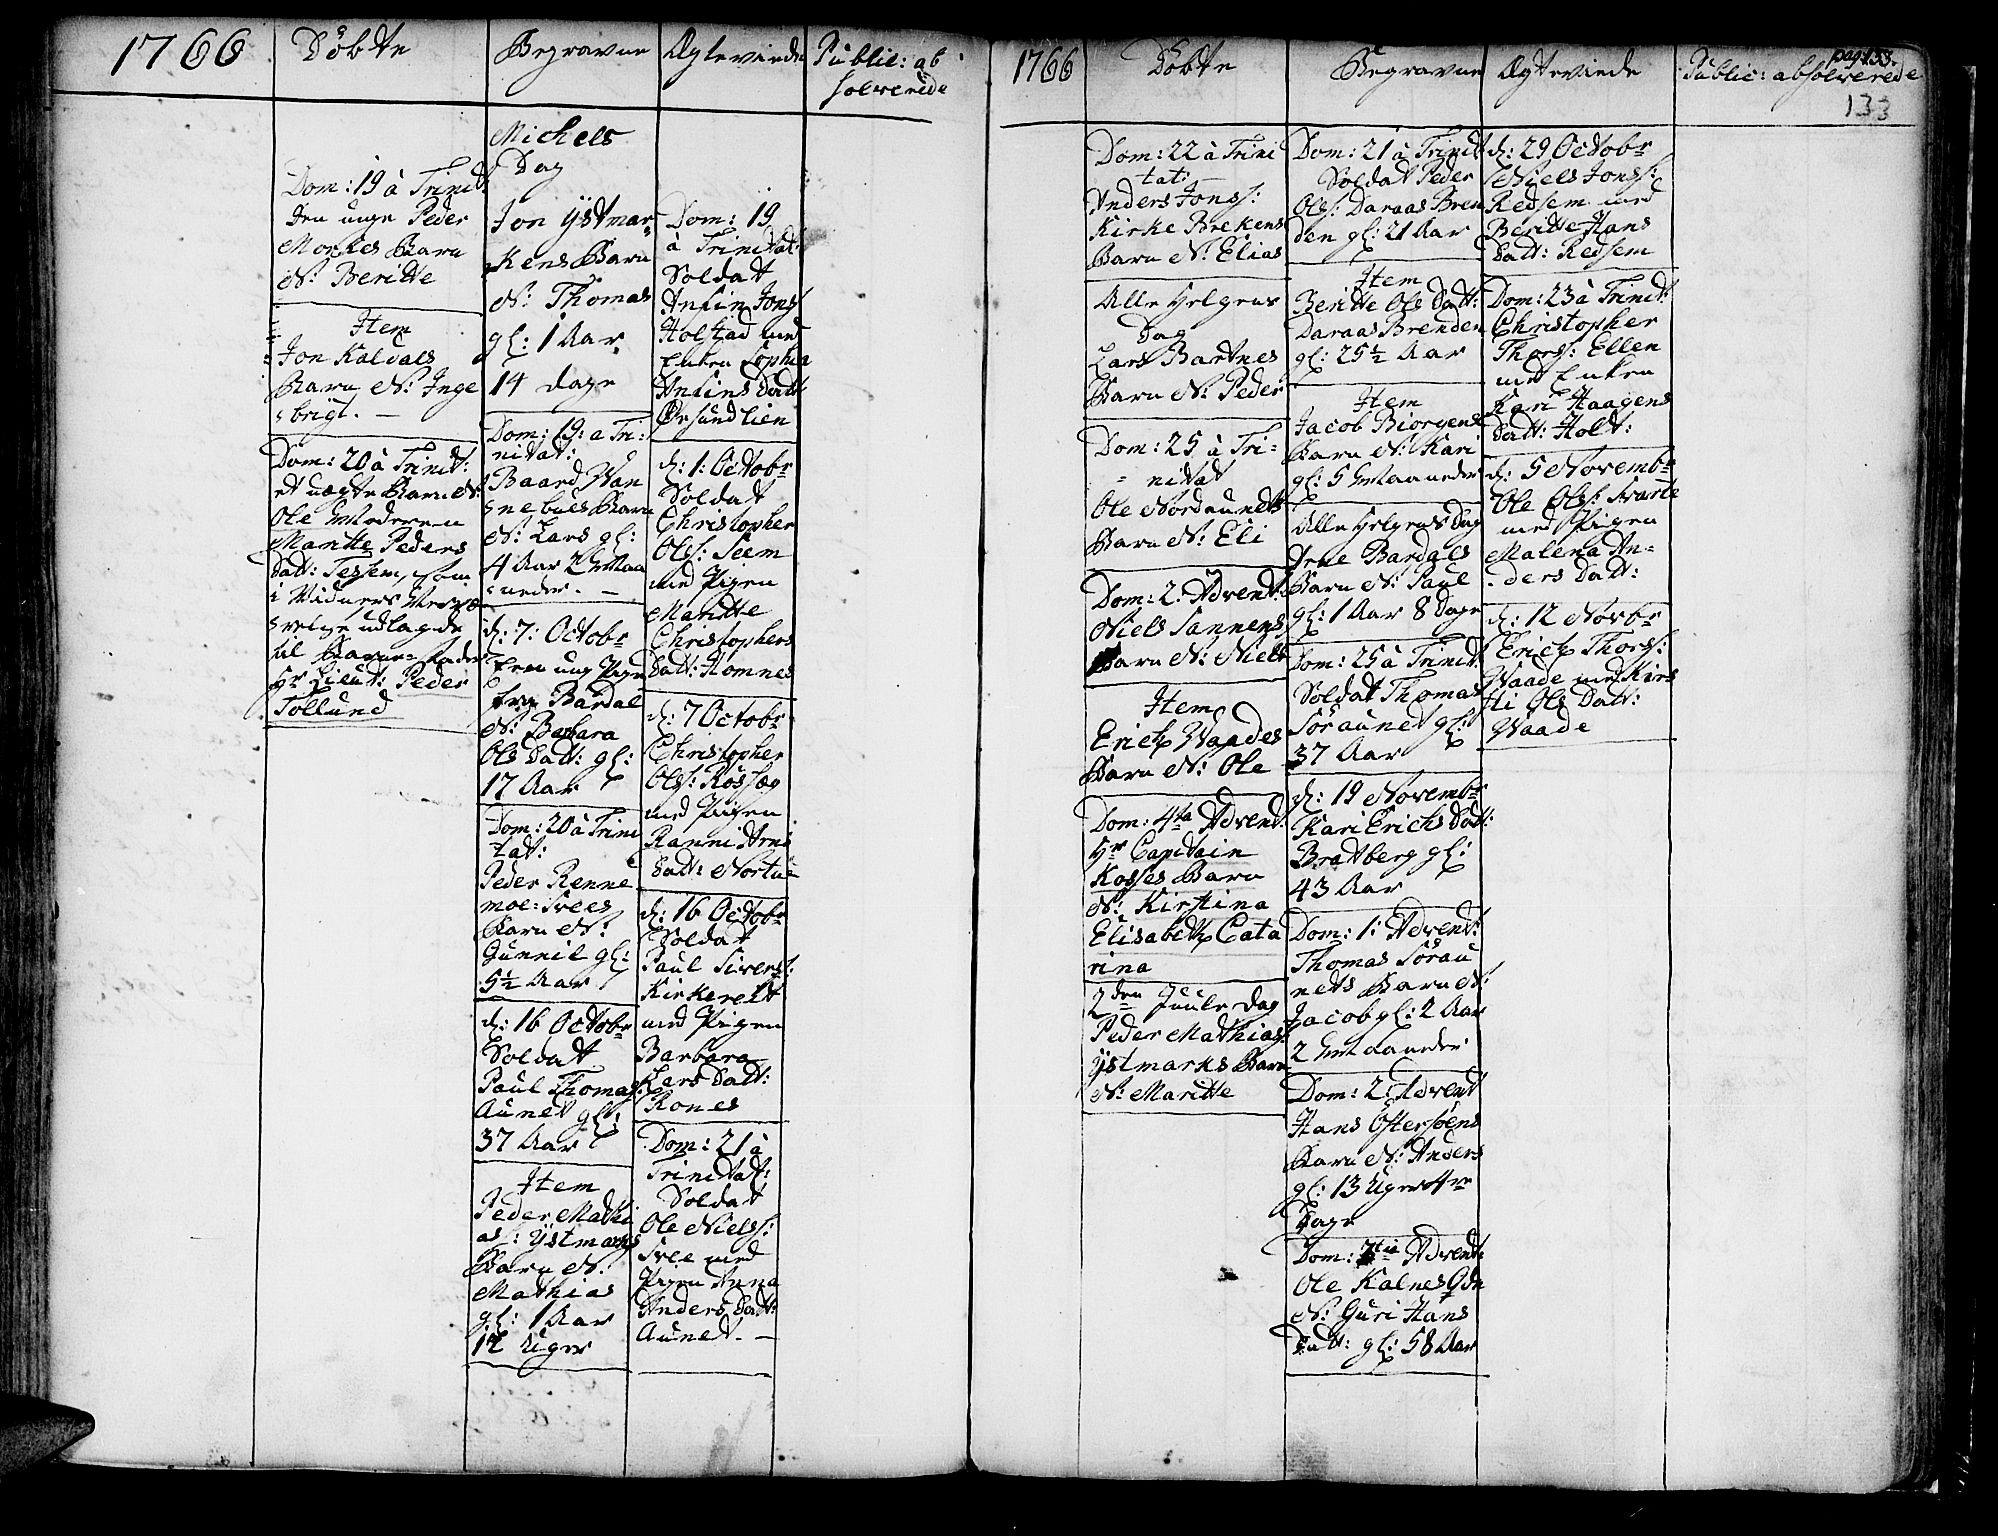 1766
Döbte
Begravne
Ægteviede
Public: ab
solverede
Dom: 19 à Trinit
den unge Peder
Morkes Barn
N: Beritte
Item
Jon Kaldals
Barn N: Inge
brigt. —
Dom: 20 à Trinit:
et uægte Barn N:
Ole Moderen
Maritte Peders
Datt: Tessem, som
i Vidners
udlagde
til Barne-Fader
Hr Lieut: Peder
Tollund
Michels
Dag
Jon Ystmar-
kens Barn
N: Thomas
gl: 1 Aar
14 dage
Dom: 19: a Tri:
nitat:
Baard Wan
nebuls Barn
N: Lars gl:
4 Aar 2 Maa
neder. —
d: 7: Octobr
en ung Pige
fra Bardal
N: Barbara
Ols Datt: gl:
17 Aar
Dom: 20 à Trini
tat:
Peder Renne
moe: Svees
Barn N:
Gunnil gl:
5½ Aar
d: 16 Octobr
Soldat
Paul Thomas:
Aunet gl:
37 Aar
Item
Peder Mathi
as: Ystmarks
Barn N:
Mathias
gl: 1 Aar
12 Uger
Dom: 19
à Trinitat:
Soldat
Anfin Jons:
Holstad med
Enken Sophia
Anfins Datt
Øesundlien
d: 1: Octobr
Soldat
Christopher
Ols: Seem
med Pigen
Maritte
Christophers
Datt: Homnes
d: 7 Octobr
Christopher
Ols: Rossæg
med Pigen
Ranni Arns
Datt: Nortu
d: 16 Octobr
Soldat
Paul Sivers:
Kirkereit
med Pigen
Barbara
Lars Datt:
Rones
Dom: 21 à
Trinitat:
Soldat
Ole Niels:
Svee med
Pigen Anna
Anders Datt:
Aunet. —
1766
Döbte
Begravne
Ægteviede
Public: absolverede
pag: 133.
133
Dom: 22 à Trini
tat: —
Anders Jons:
Kirke Brekens
Barn N: Elias
Alle Helgens
Dag
Lars Bartnes
Barn N: Peder
Dom: 25 à Tri-
nitat
Ole Nordaunets
Barn N: Eli
Dom: 2. Advent:
Niels Sannens
Barn N: Niels
Item
Erich Waades
Barn N: Ole
Dom: 4ta Advent:
Hr Capitain
Kosses Barn
N: Kirstina
Elisabeth Cata
rina
2den Juule Dag
Peder Mathias
Ystmarks Barn
N: Maritte
Dom: 21 à Trinit
Soldat Peder
Ols: Daraas Bren
den gl: 21 Aar
Item
Beritte Ols Datt:
Daraas Brenden
gl: 25½ Aar
Item
Jacob Biorgens
Barn N: Kari
gl: 5 Maaneder
Alle Helgens Dag
Arne Bardals
Barn N: Paul
gl: 1 Aar 8 Dage
Dom: 25 à Trinit:
Soldat Thomas
Söraunet gl:
37 Aar
d: 19 Novembr
Kari Erichs Datt:
Bratberg gl:
43 Aar
Dom: 1: Advent:
Thomas Sörau
nets Barn N:
Jacob gl: 2 Aar
2 Maaneder
Dom: 2: Advent
Hans Ostersøens
Barn N: Anders
gl: 13 Uger 4re
Dage
Dom: Advent:
Ole Kalnes Qdn
N: Guri Hans
Datt: gl: 58 Aar
d: 29 Octobr
Niels Jons:
Redsem med
Beritte Hans
Datt: Redsem
Dom: 23 à Trinit:
Christopher
Thors: Ellen
med Enken
Kari Haagens
Datt: Holt:
d: 5 Novembr
Ole Ols: Svarte
med Pigen
Malena An-
ders Datt:
d: 12 Novbr
Erich Thors:
Waade med Kirs
ti Ols Datt:
Waade